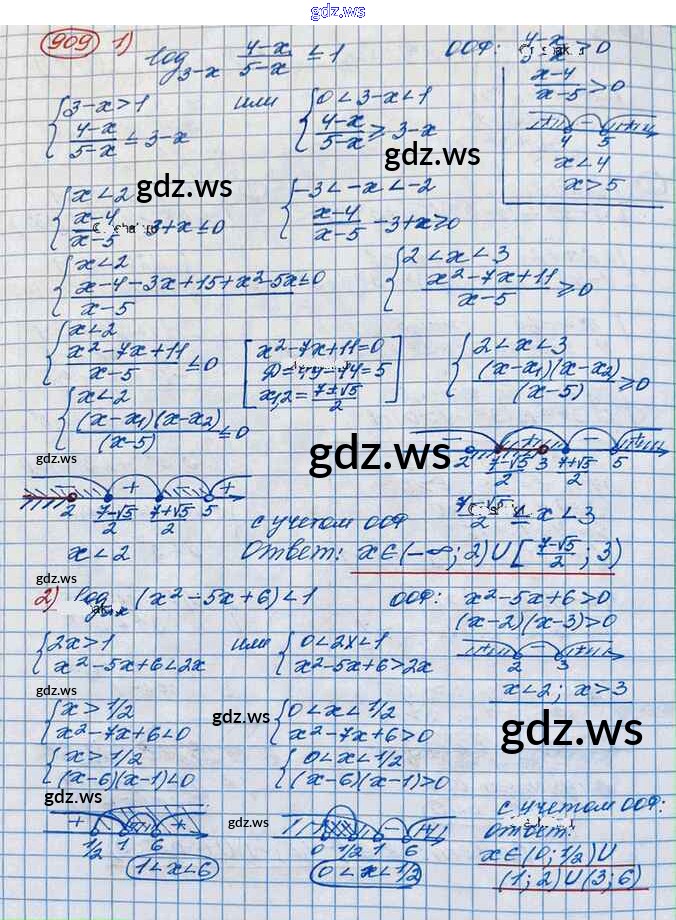 gdz.ws
909 1) log₃₋ₓ (4-x)/(5-x) ≤ 1
ООФ: > 0
(x-4)/(x-5) > 0
4 5
x < 4
x > 5
{ 3-x > 1
(4-x)/(5-x) ≤ 3-x
или
{ 0 < 3-x < 1
(4-x)/(5-x) ≥ 3-x
gdz.ws
gdz.ws
{ x < 2
(x-4)/(x-5) 3+x ≤ 0
{ -3 < -x < -2
(x-4)/(x-5) - 3+x ≥ 0
{ x < 2
(x-4-3x+15+x²-5x)/(x-5) ≤ 0
{ 2 < x < 3
(x²-7x+11)/(x-5) ≥ 0
{ x < 2
(x²-7x+11)/(x-5) ≤ 0
[ x²-7x+11=0
D=49-44=5
x₁,₂ = (7±√5)/2 ]
{ 2 < x < 3
(x-x₁)(x-x₂)/(x-5) ≥ 0
{ x < 2
(x-x₁)(x-x₂)/(x-5) ≤ 0
gdz.ws
gdz.ws
2 (7-√5)/2 3 (7+√5)/2 5
+ - +
2 (7-√5)/2 (7+√5)/2 5
x < 2
с учетом ООФ
(7-√5)/2 ≤ x < 3
Ответ: x∈(-∞; 2)∪[(7-√5)/2; 3)
gdz.ws
2) log (x²-5x+6) < 1
ООФ: x²-5x+6 > 0
(x-2)(x-3) > 0
2 3
x < 2; x > 3
{ 2x > 1
x²-5x+6 < 2x
или
{ 0 < 2x < 1
x²-5x+6 > 2x
gdz.ws
gdz.ws
gdz.ws
{ x > 1/2
x²-7x+6 < 0
{ 0 < x < 1/2
x²-7x+6 > 0
{ x > 1/2
(x-6)(x-1) < 0
{ 0 < x < 1/2
(x-6)(x-1) > 0
gdz.ws
gdz.ws
+ - +
1/2 1 6
1 < x < 6
0 1/2 1 6
0 < x < 1/2
с учетом ООФ:
Ответ:
x∈(0; 1/2)∪
(1; 2)∪(3; 6)